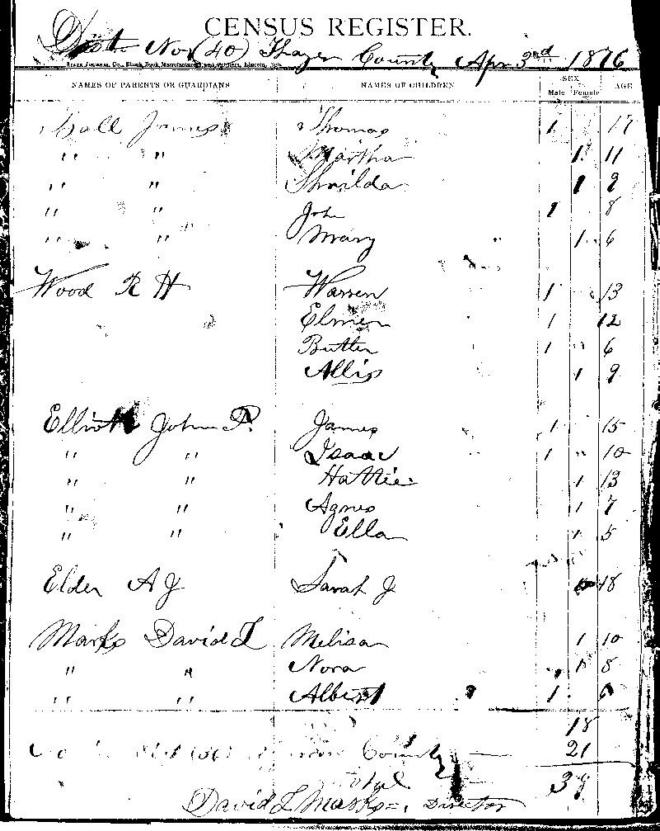 CENSUS REGISTER.
Dist. No (40) Thayer County Apr 3rd 1876
STATE JOURNAL CO.,
NAMES OF PARENTS OR GUARDIANS NAMES OF CHILDREN SEX AGE
Male Female
James Thomas 1 17
" " Martha 1 11
" " 1 9
" " John 1 8
" " Mary 1 6
Wood R H Warren 1 13
Elmer 1 12
Butler 1 6
Allis 1 9
Elliott John P. James 1 15
" " Isaac 1 10
" " Hattie 1 13
" " Agnes 1 7
" " Ella 1 5
Elder A J Sarah J 18
Marks David L Melisa 1 10
" " Nora 1 8
" " Albert 1 6
18
County 21
Total 39
David L Marks Director